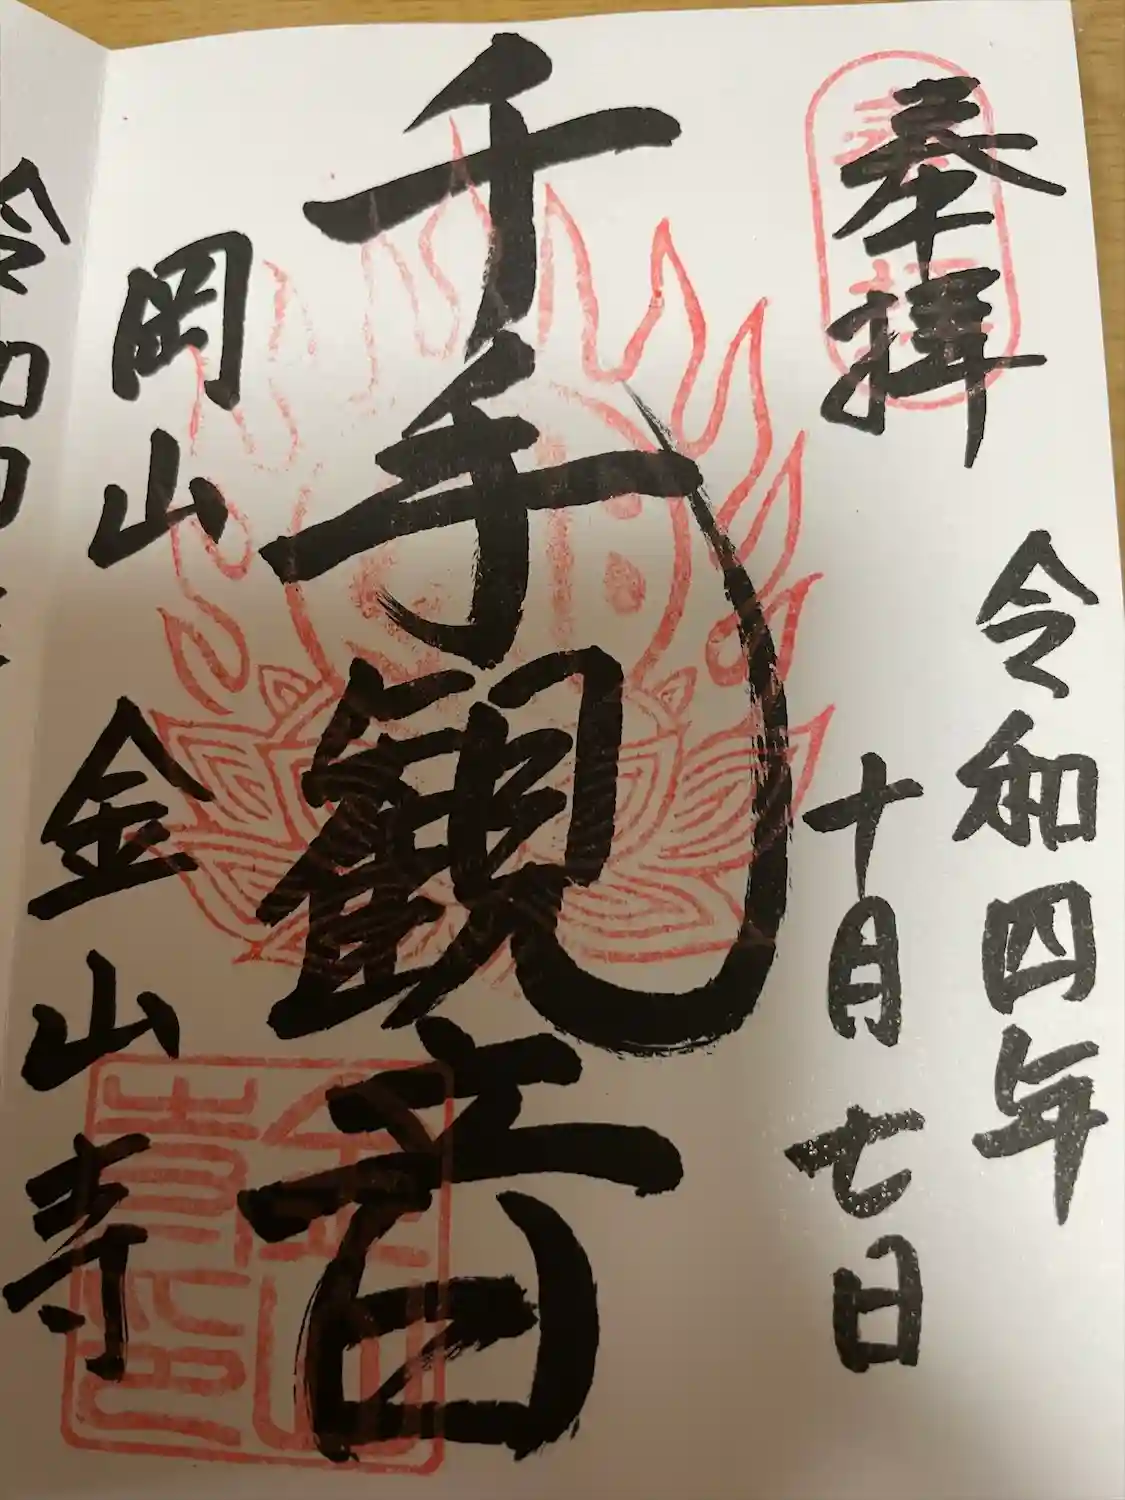 奉拝
令和四年
十月七日
千手観音
岡山 金山寺
令和四年